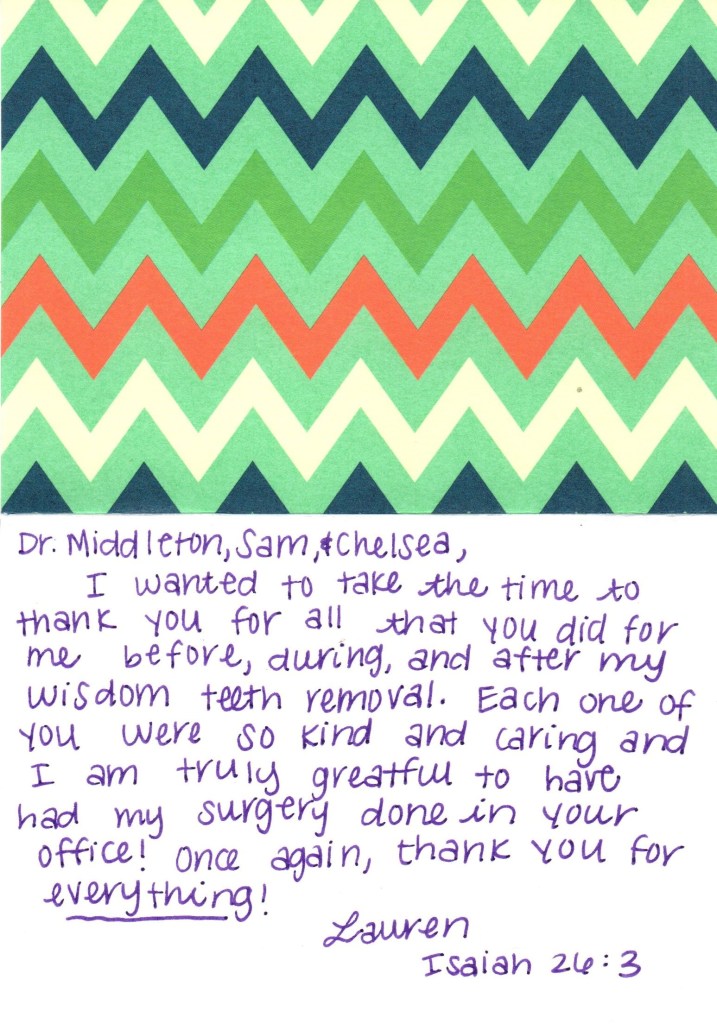 Dr. Middleton, Sam, & Chelsea,
I wanted to take the time to
thank you for all that you did for
me before, during, and after my
wisdom teeth removal. Each one of
you were so kind and caring and
I am truly greatful to have
had my surgery done in your
office! Once again, thank you for
everything!
Lauren
Isaiah 26:3